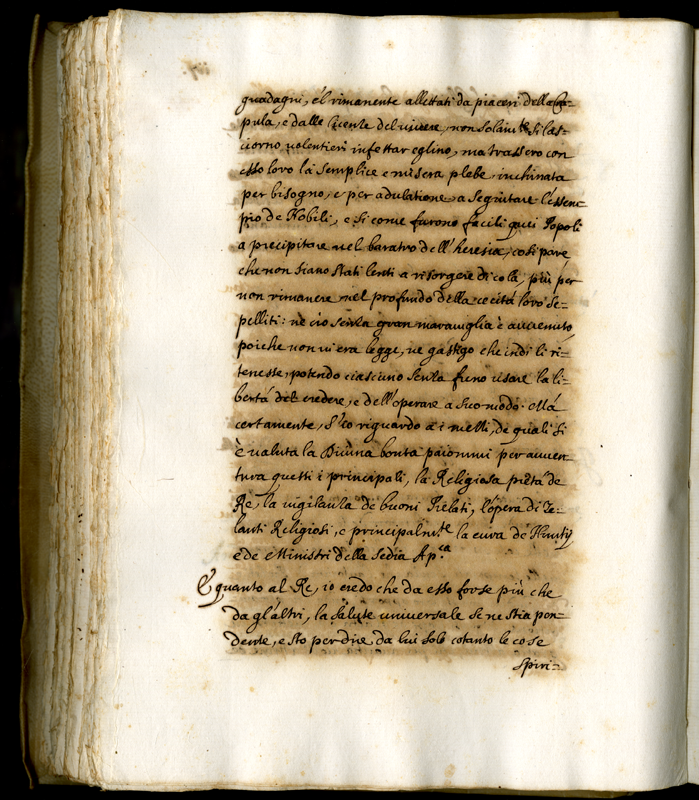 guadagni, e'l rimanente allettati da piaceri della Cra-
pula, e dalle licente del vivere, non solam.te si las-
ciorno volentieri infettar eglino, ma trassero con
esso loro la semplice e misera plebe, inclinata
per bisogno, e per adulatione, a seguitare l'essem-
pio de Nobili, e si come furono facili quei Popoli
a precipitare nel baratro dell'heresia, cosi pare,
che non siano stati lenti a risorgere di cola, più per
non rimanere nel profondo della cecità loro se-
pelliti: ne ciò senza gran maraviglia è avvenuto
poiche non vi era legge, ne gastigo che indi li ri-
tenesse, potendo ciascuno senza freno usare la li-
bertà del credere, e dell'operare a suo modo. Mà
certamente, s'ho riguardo a i mezzi, de quali si
è valuta la Divina bontà paionmi per avven-
tura questi i principali, la Religiosa pietà de
Rè, la vigilanza de buoni Prelati, l'opera di Ze-
lanti Religiosi, e principalm.te la cura de Nuntij
e de Ministri della Sedia Ap.ca
E quanto al Re, io credo che da esso forse più che
da gl'altri, la salute universale se ne stia pen-
dente, e sto per dire, da lui solo cotanto le cose
spiri-